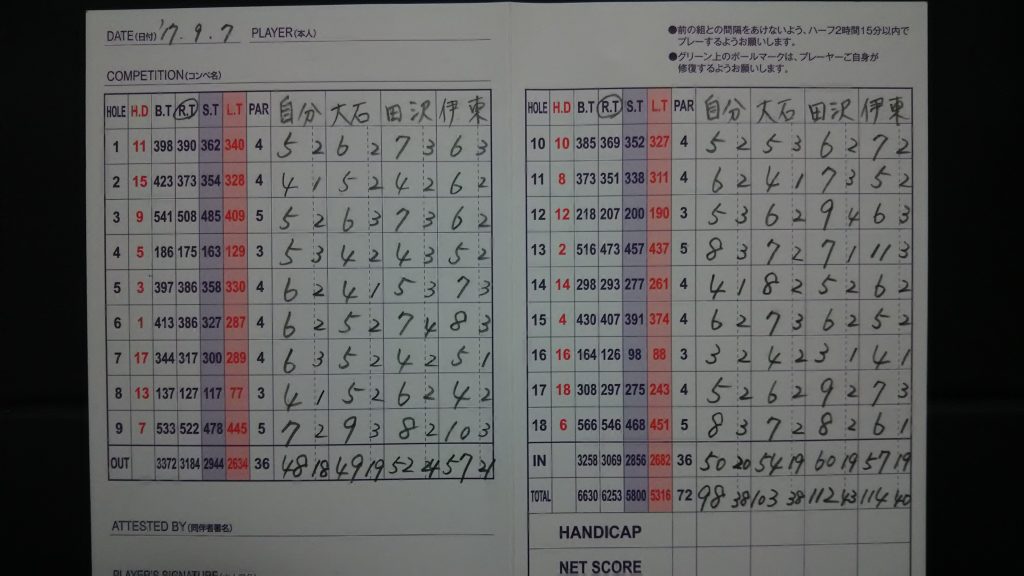 DATE(日付) '17.9.7 PLAYER(本人)
COMPETITION(コンペ名)
HOLE H.D B.T R.T S.T L.T PAR 自分 大石 田沢 伊東
1 11 398 390 362 340 4 5 2 6 2 7 3 6 3
2 15 423 373 354 328 4 4 1 5 2 4 2 6 2
3 9 541 508 485 409 5 5 2 6 3 7 3 6 2
4 5 186 175 163 129 3 5 3 4 2 4 3 5 2
5 3 397 386 358 330 4 6 2 4 1 5 3 7 3
6 1 413 386 327 287 4 6 2 5 2 7 4 8 3
7 17 344 317 300 289 4 6 3 5 2 4 2 5 1
8 13 137 127 117 77 3 4 1 5 2 6 2 4 2
9 7 533 522 478 445 5 7 2 9 3 8 2 10 3
OUT 3372 3184 2944 2634 36 48 18 49 19 52 24 57 21
ATTESTED BY(同伴者署名)
PLAYER'S SIGNATURE
●前の組との間隔をあけないよう、ハーフ2時間15分以内で
プレーするようお願いします。
●グリーン上のボールマークは、プレーヤーご自身が
修復するようお願いします。
HOLE H.D B.T R.T S.T L.T PAR 自分 大石 田沢 伊東
10 10 385 369 352 327 4 5 2 5 3 6 2 7 2
11 8 373 351 338 311 4 6 2 4 1 7 3 5 2
12 12 218 207 200 190 3 5 3 6 2 9 4 6 3
13 2 516 473 457 437 5 8 3 7 2 7 1 11 3
14 14 298 293 277 261 4 4 1 8 2 5 2 6 2
15 4 430 407 391 374 4 6 2 7 3 6 2 5 2
16 16 164 126 98 88 3 3 2 4 2 3 1 4 1
17 18 308 297 275 243 4 5 2 6 2 9 2 7 3
18 6 566 546 468 451 5 8 3 7 2 8 2 6 1
IN 3258 3069 2856 2682 36 50 20 54 19 60 19 57 19
TOTAL 6630 6253 5800 5316 72 98 38 103 38 112 43 114 40
HANDICAP
NET SCORE